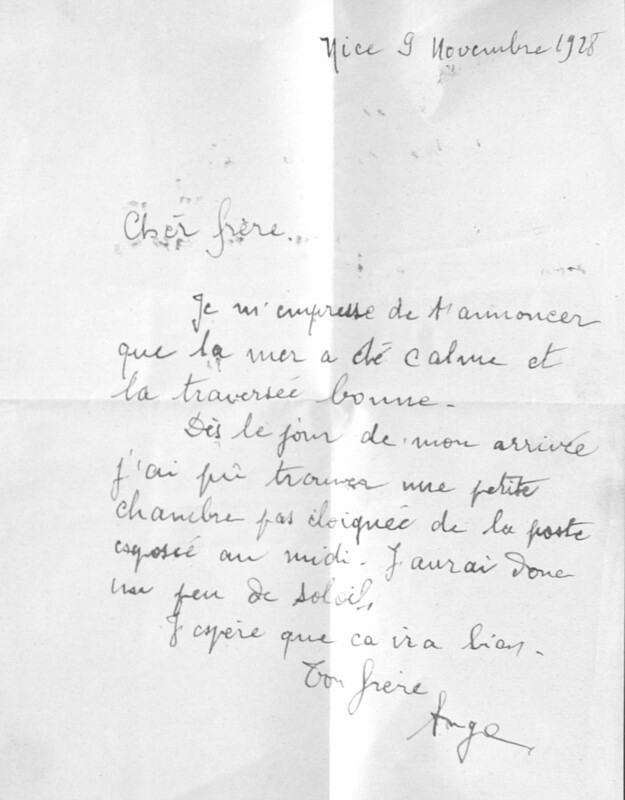 Nice 9 Novembre 1928
Cher frère.
Je m'empresse de t'annoncer
que la mer a été calme et
la traversée bonne.
Dès le jour de mon arrivée
j'ai pû trouver une petite
chambre pas éloignée de la poste
exposée au midi. J'aurai donc
un peu de soleil.
J'espère que ca ira bien.
Ton frère
Ange